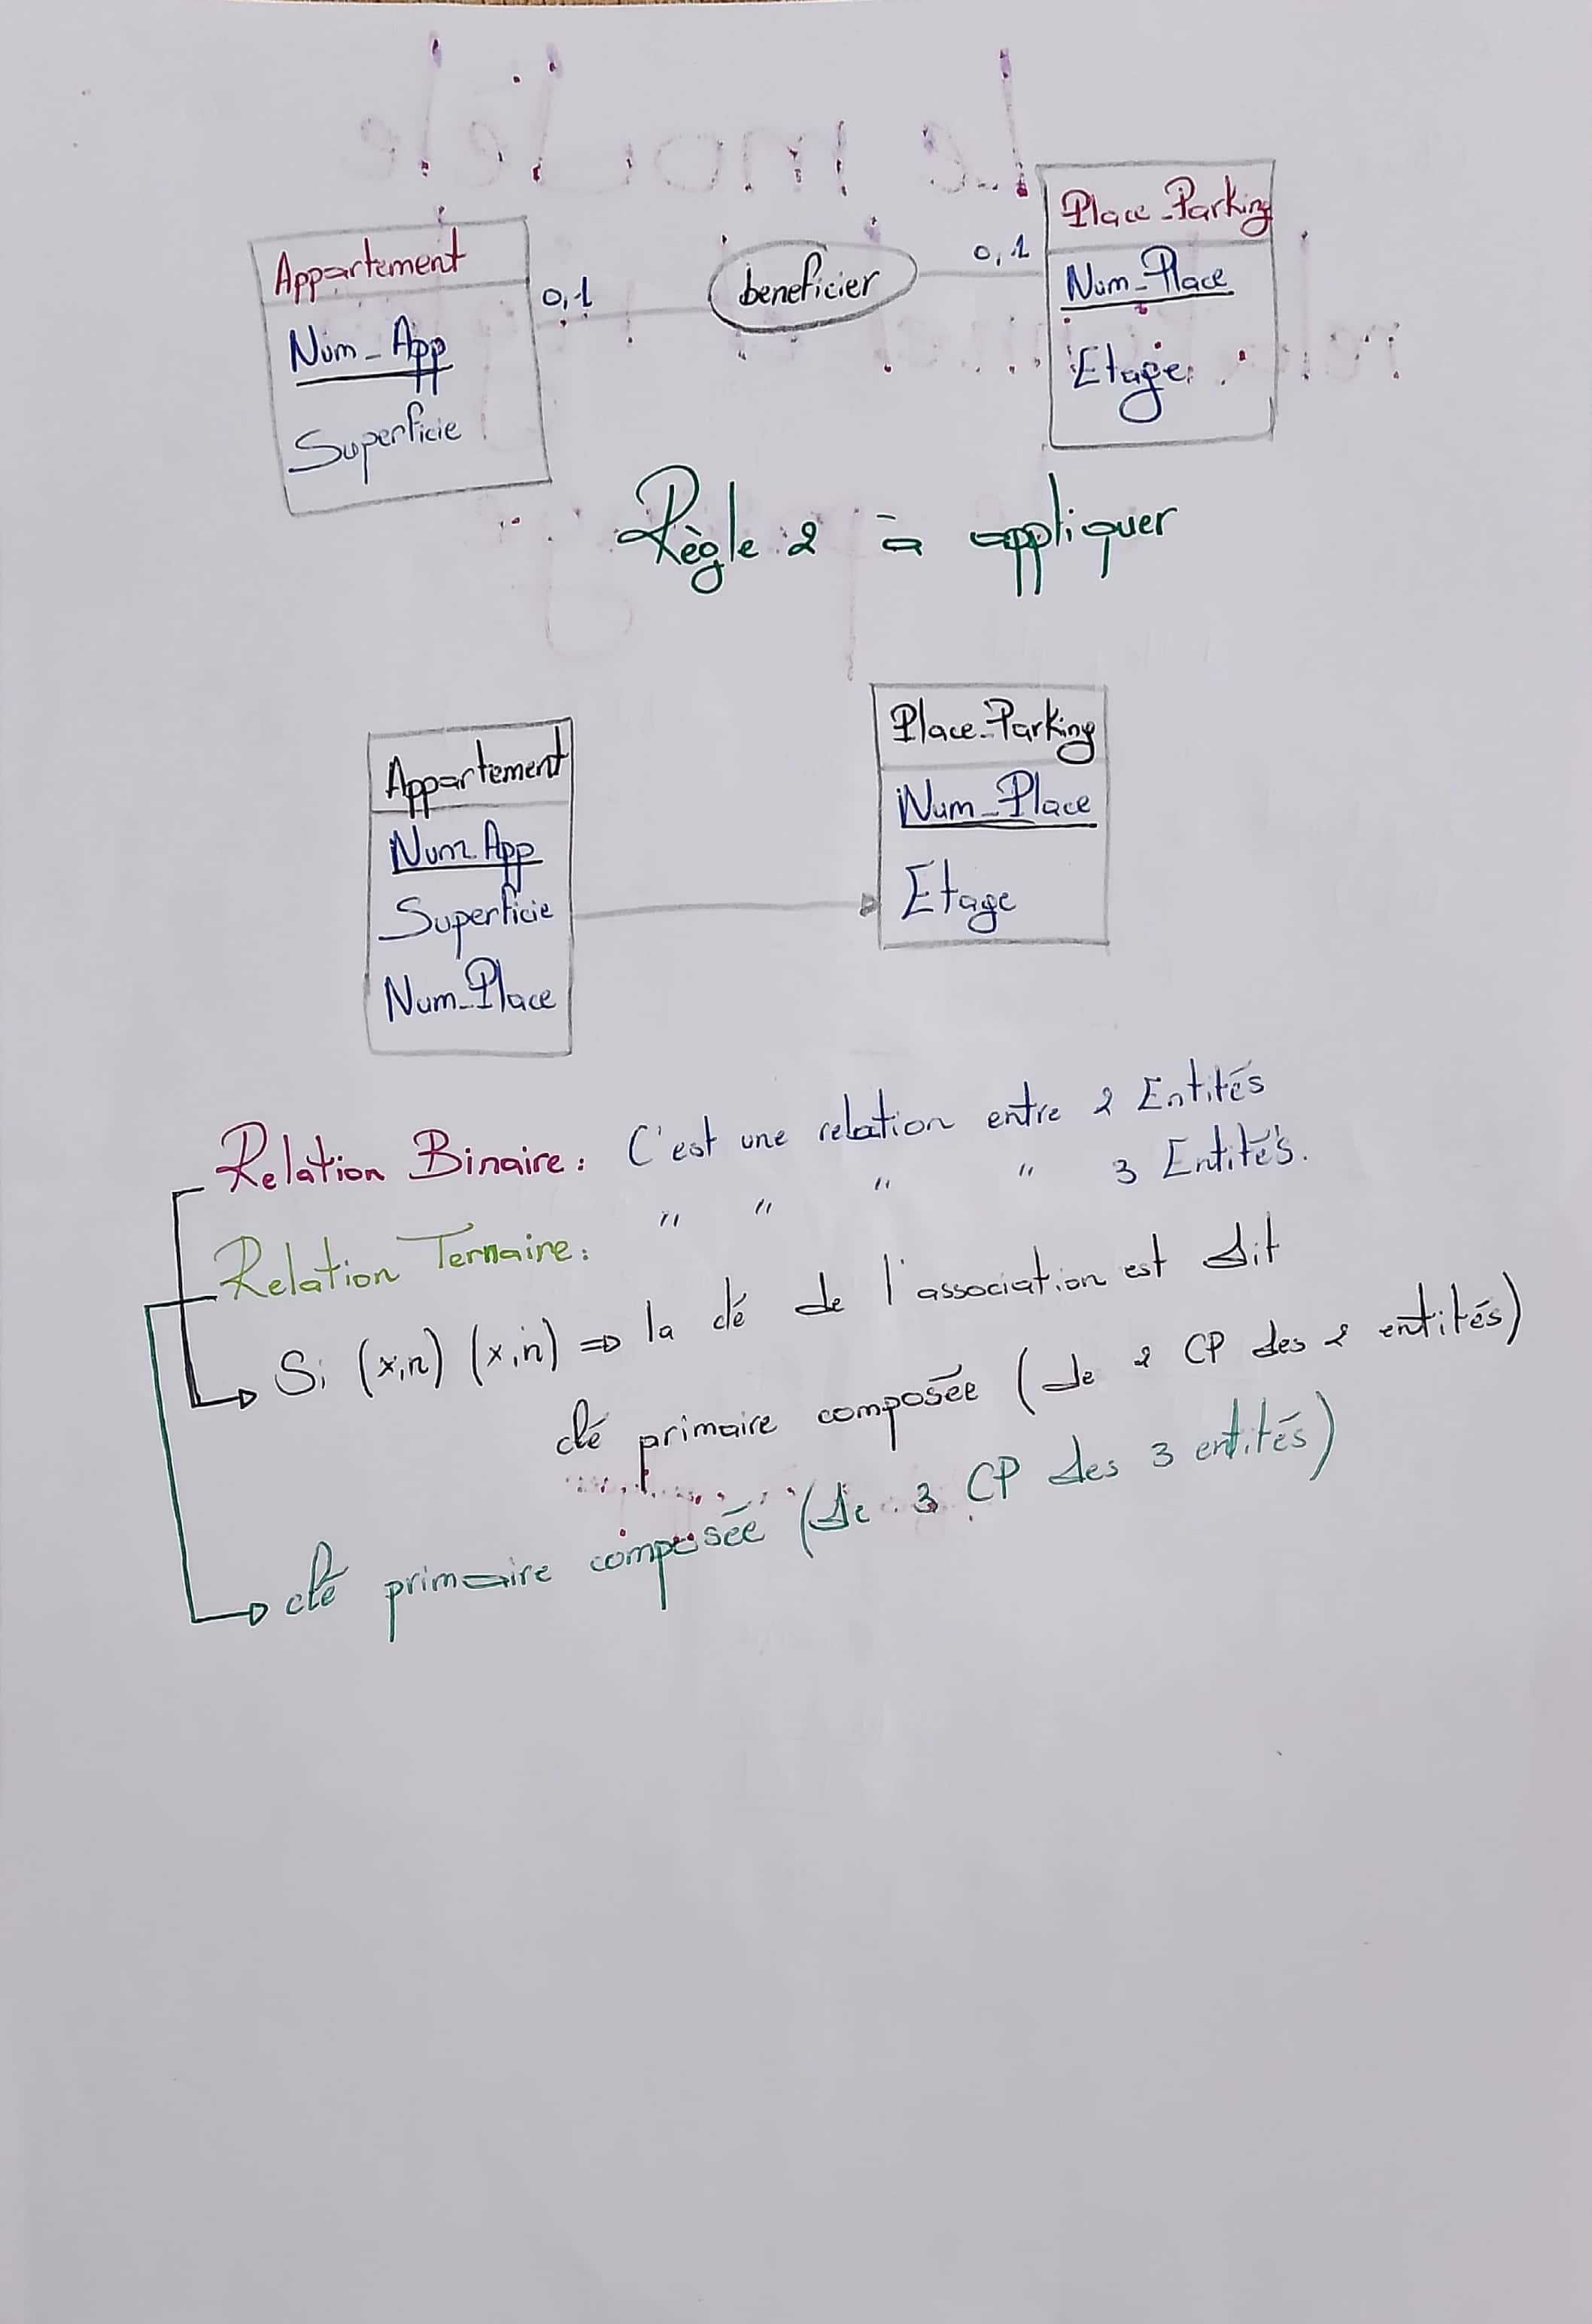 Appartement
Num_App
Superficie
0,1
beneficier
0,1
Place_Parking
Num_Place
Etage
Règle 2 à appliquer
Appartement
Num_App
Superficie
Num_Place
Place_Parking
Num_Place
Etage
Relation Binaire : C'est une relation entre 2 Entités
Relation Ternaire : " " " " 3 Entités.
Si (x,n) (x,n) => la clé de l'association est dit
clé primaire composée (de 2 CP des 2 entités)
clé primaire composée (de 3 CP des 3 entités)